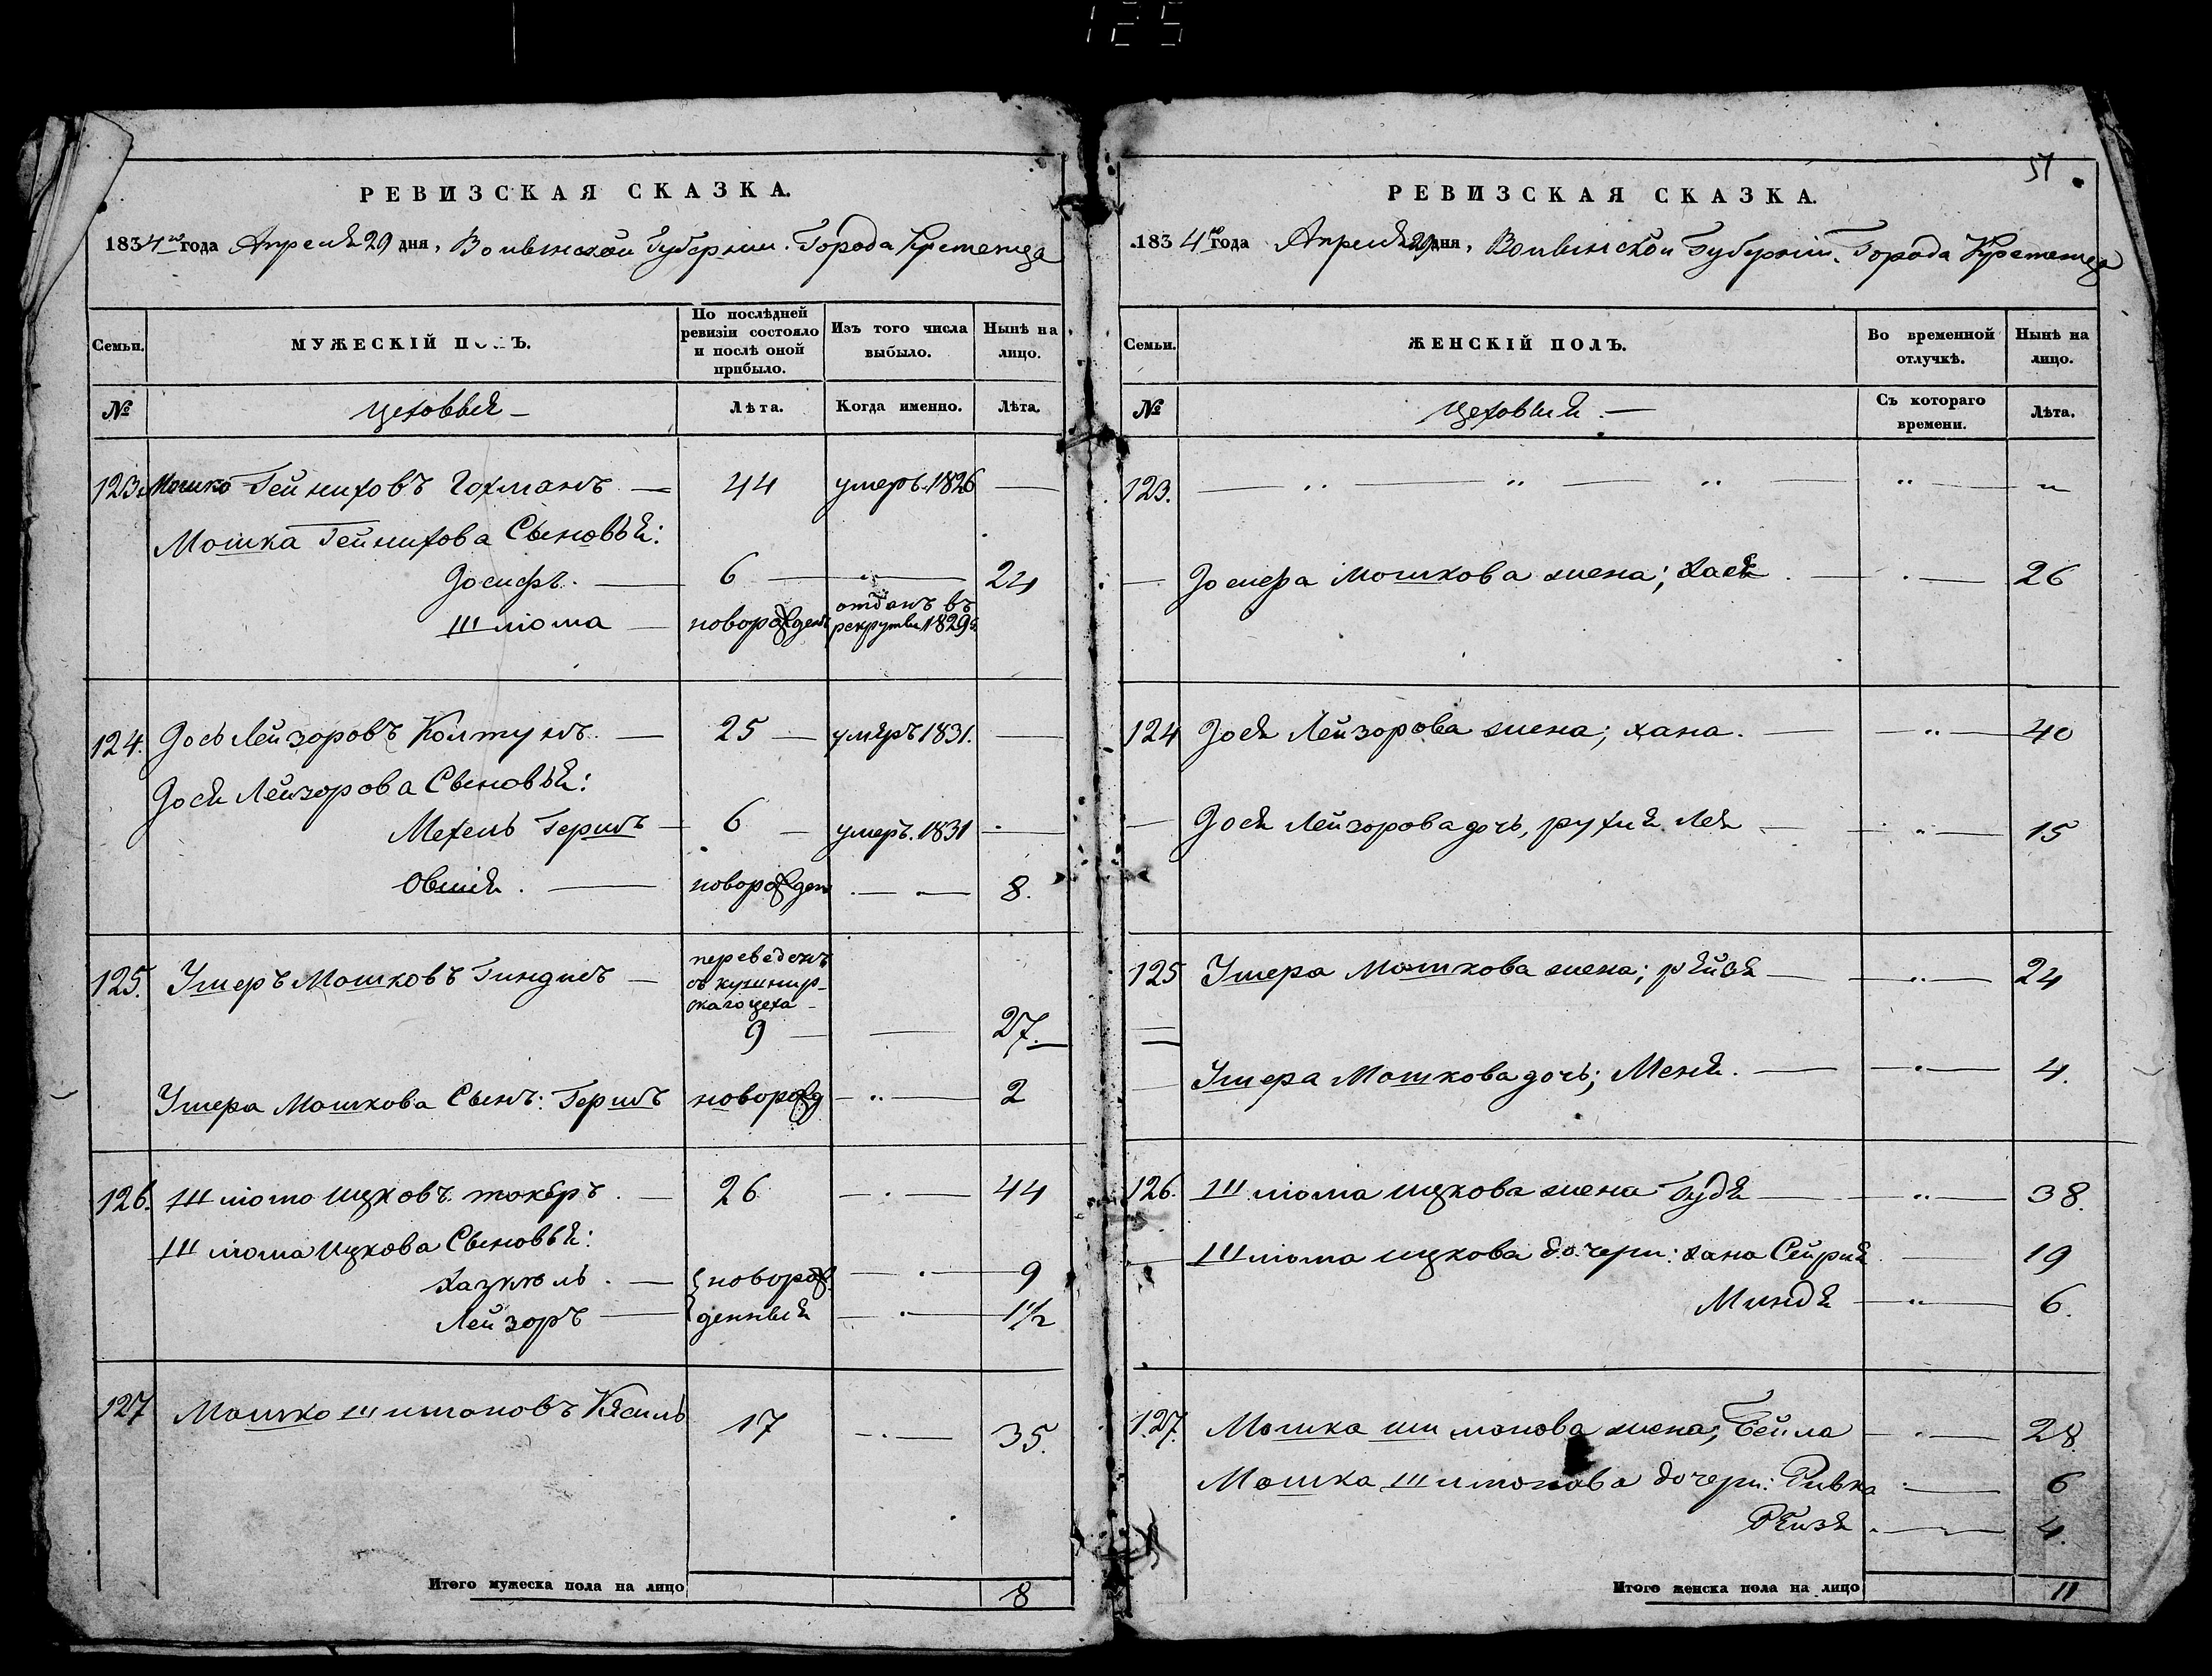 125
РЕВИЗСКАЯ СКАЗКА.
1834го года Апреля 29 дня, Волынской Губернии. Города Кременца
Семьи.
МУЖЕСКІЙ ПОЛЪ.
По послѣдней ревизіи состояло и послѣ оной прибыло.
Изъ того числа выбыло.
Нынѣ на лицо.
№
Цеховыя
Лѣта.
Когда именно.
Лѣта.
123. Мошко Гейниховъ Гохманъ — 44 умеръ. 1826 —
Мошка Гейнихова Сыновья:
Іосифъ. — 6 — " — 24
Шлиома — новорожден отданъ въ рекруты 1829г.
124. Іось Лейзоровъ Колтунъ. — 25 — умяръ 1831. —
Іося Лейзорова Сыновья:
Мехель Гершъ — 6 — умеръ. 1831 —
Овшія. — новорожден — — 8.
125. Ушеръ Мошковъ Гиндисъ — переведенъ съ кушнир-
скаго цеха —
9 — — 27.
Ушера Мошкова Сынъ: Гершъ новорожд — " — 2
126. Шлиомо Ицковъ токяръ. — 26 — . — 44
Шлиома Ицкова Сыновья:
Хазкель. — новорож — . — 9
Лейзоръ — денныя — . — 1 1/2
127 Мошко Шимоновъ 17 — . — 35.
Итого мужеска пола на лицо 8
57
РЕВИЗСКАЯ СКАЗКА.
1834го года Апреля 29 дня, Волынской Губерніи. Города Кременца
Семьи.
ЖЕНСКІЙ ПОЛЪ.
Во временной отлучкѣ.
Нынѣ на лицо.
№
Цеховыя. —
Съ котораго времени.
Лѣта.
123. — " — " — " — " — "
— Іосифа Мошкова жена; Хася. — . — 26
124 Іося Лейзорова жена; хана. — " — 40
— Іося Лейзорова дочь, рухля Лея — " — 15
125 Ушера Мошкова жена; рейзя — " — 24
— Ушера Мошкова дочь; Меня. — . — 4.
126. Шлиома Ицкова жена Гудя — " — 38.
— Шлиома Ицкова дочери: хана Сейрия — 19
Миндя — " — 6.
127. Мошка шимонова жена; Бейла — . — 28
Мошка Шимонова дочери: Ривка — 6
Рейзя. — 4.
Итого женска пола на лицо 11